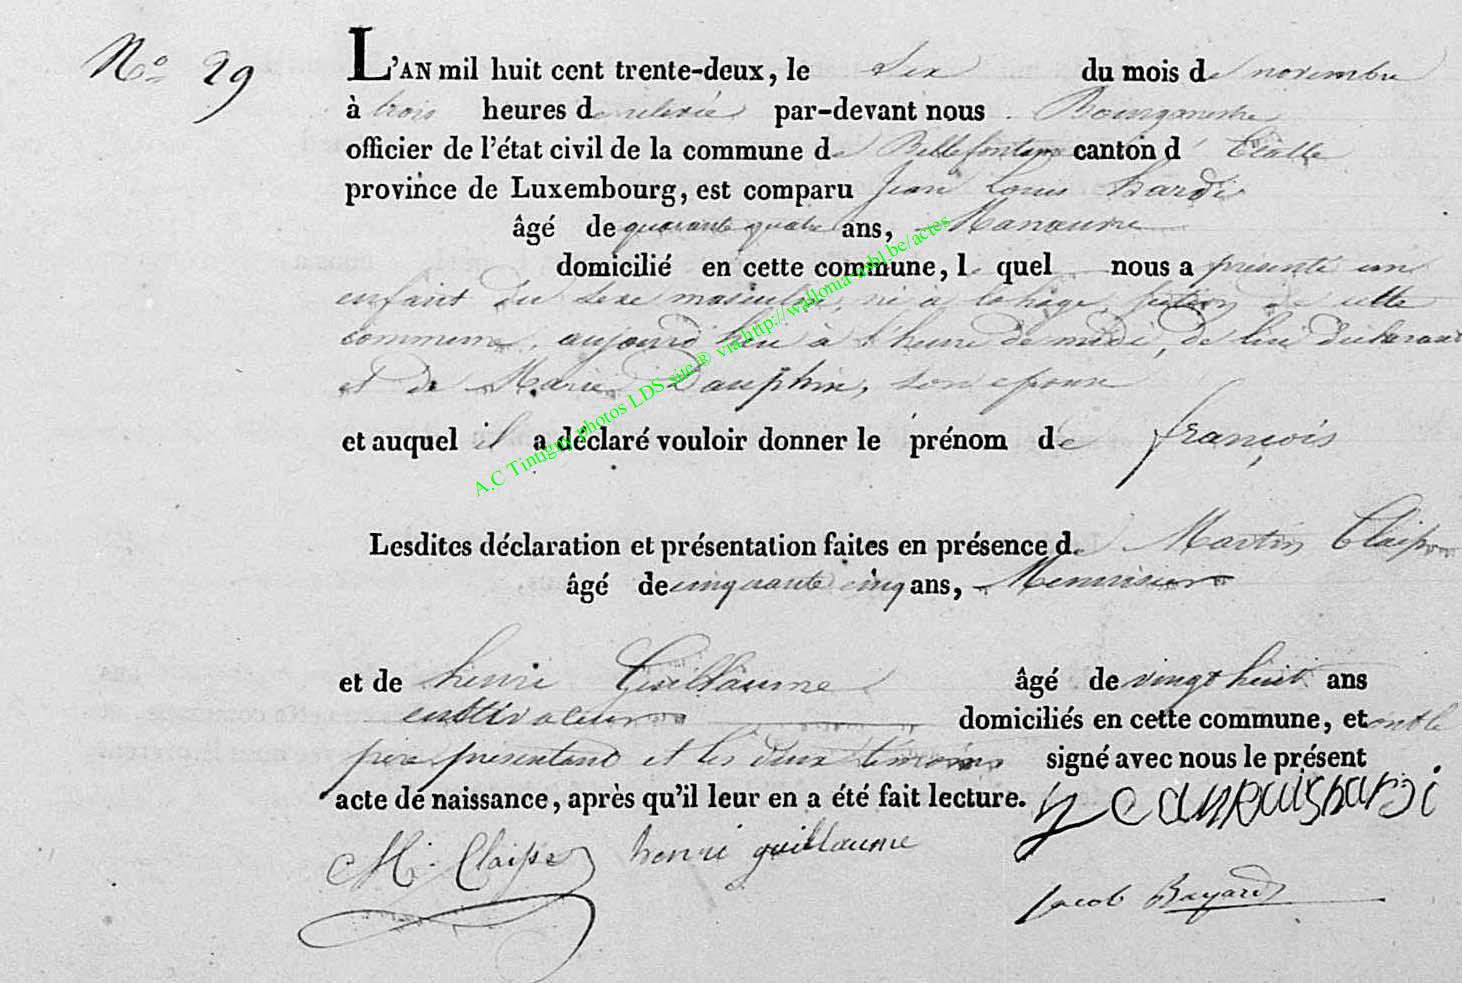 N.º 29
L'AN mil huit cent trente-deux, le six du mois de novembre
à trois heures de relevée par-devant nous Bourgmestre
officier de l'état civil de la commune de Bellefontaine canton d' Etalle
province de Luxembourg, est comparu Jean Louis hardi
âgé de quarante quatre ans, Manœuvre
domicilié en cette commune, lequel nous a présenté un
enfant du sexe masculin, né à lahage, section de cette
commune, aujourd'hui à l'heure de midi, de lui déclarant
et de Marie Dauphin, son epouse
et auquel il a déclaré vouloir donner le prénom de françois
Lesdites déclaration et présentation faites en présence de Martin
âgé de cinquante cinq ans, Menuisier
et de henri Guillaume âgé de vingt huit ans
cultivateur domiciliés en cette commune, et ont le
père présentant et les deux témoins signé avec nous le présent
acte de naissance, après qu'il leur en a été fait lecture.
M. henri guillaume
jacob Bayard
A.C Tintigny photos LDS site ® via http://wallonia-asbl.be/actes